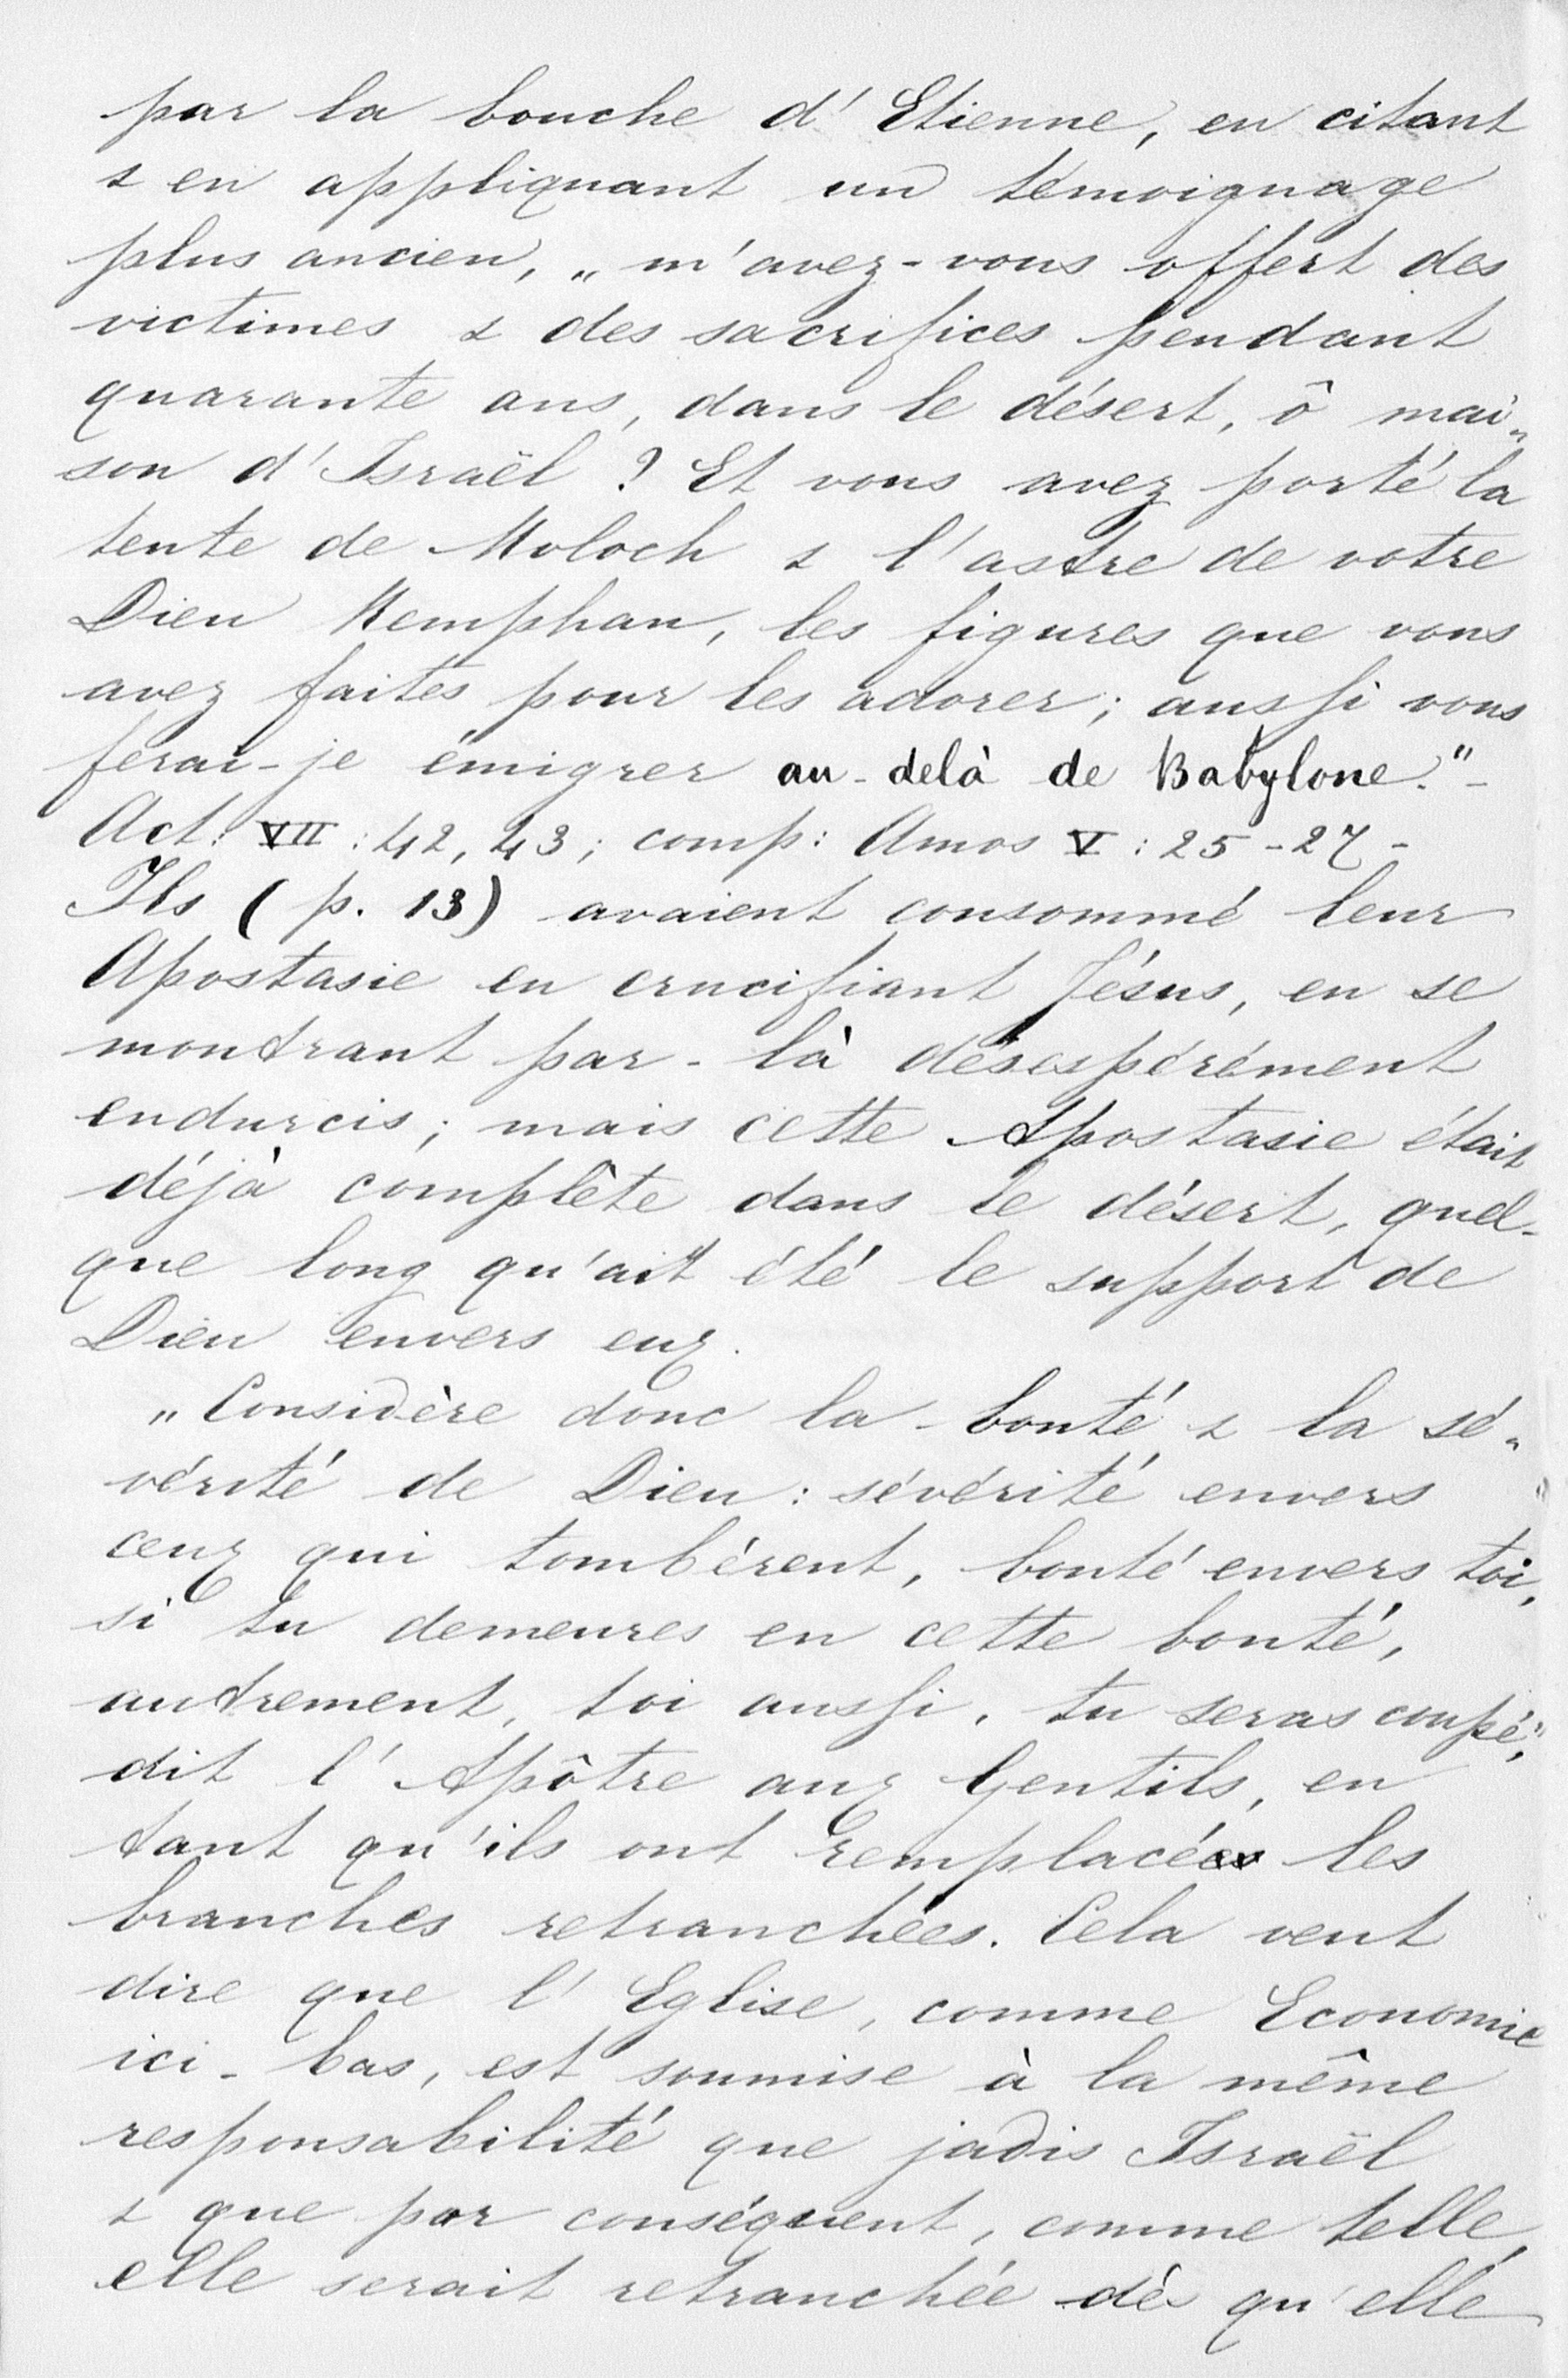 par la bouche d'Etienne, en citant
& en appliquant un témoignage
plus ancien, „ m'avez-vous offert des
victimes & des sacrifices pendant
quarante ans, dans le désert, ô mai„
son d'Israël ? Et vous avez porté la
tente de Moloch & l'astre de votre
Dieu Remphan, les figures que vous
avez faites pour les adorer ; aussi vous
ferai-je émigrer au-delà de Babylone."-
Act: VII : 42, 43 ; comp: Amos V : 25-27-
Ils ( p. 13) avaient consommé leur
Apostasie en crucifiant Jésus, en se
montrant par-là désespérément
endurcis ; mais cette Apostasie était
déjà complète dans le désert, quel-
que long qu'ait été le support de
Dieu envers eux.
„ Considère donc la bonté & la sé„
vérité de Dieu : sévérité envers
ceux qui tombèrent, bonté envers toi,
si tu demeures en cette bonté,
autrement, toi aussi, tu seras coupé",
dit l'Apôtre aux Gentils, en
tant qu'ils ont remplacé les
branches retranchées. Cela veut
dire que l'Eglise, comme Economie
ici-bas, est soumise à la même
responsabilité que jadis Israël
& que par conséquent, comme telle,
elle serait retranchée dès qu'elle